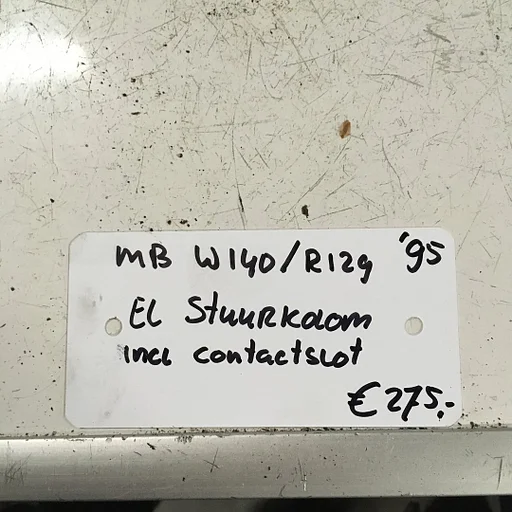 MB W140/R129 '95
El Stuurkolom
incl contactslot
€ 275,-